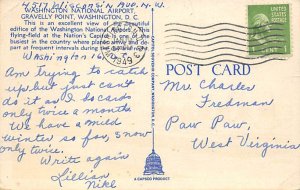 4519 Wisconsin Ave. N.W.
WASHINGTON NATIONAL AIRPORT,
GRAVELLY POINT, WASHINGTON, D. C.
This is an excellent view of the beautiful
edifice of the Washington National Airport
flying-field at the Nation's Capital is one of the
busiest in the country where planes arrive and de-
part at frequent intervals during the day and night.
Washington 16, D.C.
Am trying to catch
up but just can't
do it as I do cards
only twice a month
We have a mild
winter so far, snow
only twice.
Write again
Lillian
Nike
1949
POST CARD
Mr. Charles
Fredman
Paw Paw,
West Virginia
A CAPSCO PRODUCT